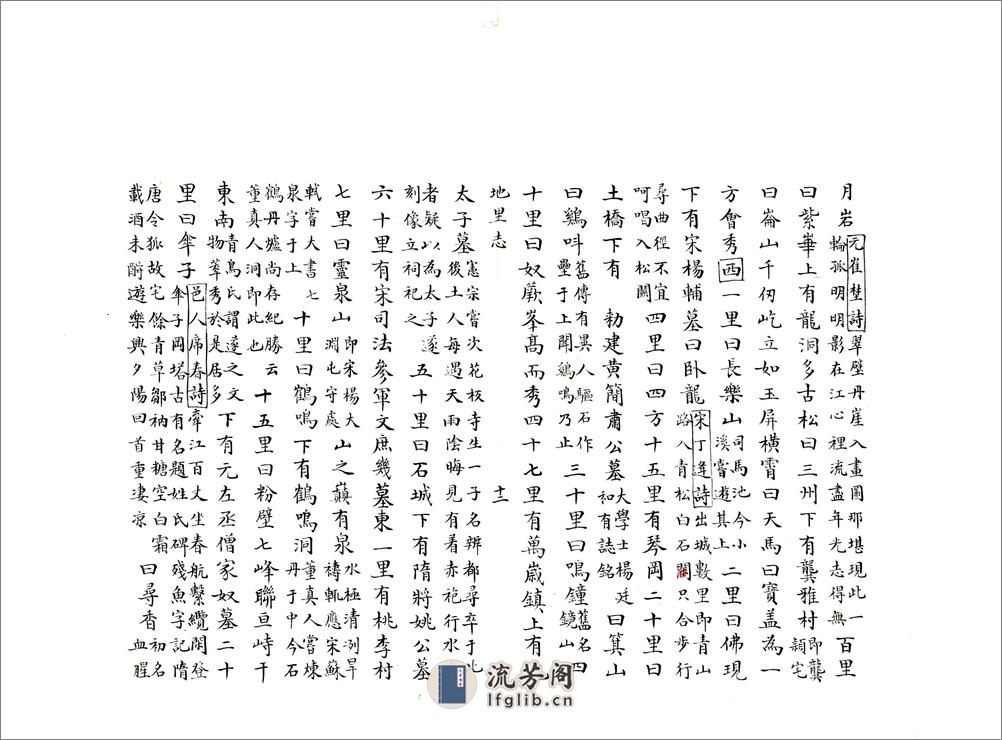 月岩元崔埜詩翠壁丹崖入畫圖那堪現此一輪孤明明影在江心裡流盡年光志得無百里
曰紫崋上有龍洞多古松曰三州下有龔雅村即龔頴宅
曰崙山千仞屹立如玉屏橫霄曰天馬曰寶盖為一
方會秀西一里曰長樂山司馬池今小溪嘗遊其上二里曰佛現
下有宋楊輔墓曰臥龍宋丁逢詩出城數里即青山路入青松白石間只合步行
尋曲徑不宜呵唱入松關四里曰四方十五里有琴岡二十里曰
土橋下有 勅建黃簡肅公墓大學士楊廷和有誌銘曰箕山
曰鷄呌舊傳有異人驅石作壘于上聞鷄鳴乃止三十里曰鳴鐘舊名鏡山四
十里曰奴厥峯髙而秀四十七里有萬歲鎮上有
地里志 十二
太子墓憲宗甞次花板寺生一子名辨都尋卒于此後土人每遇天雨陰晦見有看赤袍行水
者疑以為太子遂刻像立祠祀之五十里曰石城下有隋將姚公墓
六十里有宋司法參軍文庶幾墓東一里有桃李村
七里曰靈泉山即宋楊大淵屯守處山之蘋有泉水極清冽旱禱輒應宋蘇
軾嘗大書泉字于上七十里曰鶴鳴下有鶴鳴洞董真人嘗煉丹于中今石
鶴丹墟尚存紀勝云董真人洞即此也十五里曰粉壁七峰聯亘峙于
東南青鳥氏謂蓬之文物萃秀於是居多下有元左丞僧家奴墓二十
里曰傘子邑人席春詩牽江百丈坐春航繫纜閒登傘子岡塔古有名題姓氏碑殘魚字記隋
唐令狐故宅餘青草鄒衲甘糖空白霜載酒未酹遊樂興夕陽回首重凄涼曰尋香初名血腥
流芳阁
lfglib.cn